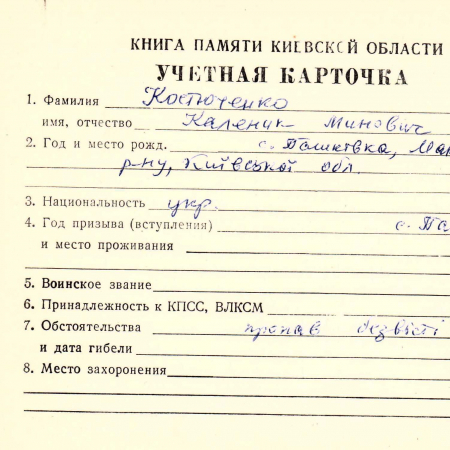 КНИГА ПАМЯТИ КИЕВСКОЙ ОБЛАСТИ
УЧЕТНАЯ КАРТОЧКА
1. Фамилия Костюченко
имя, отчество Каленик Минович
2. Год и место рожд. с. Пашківка, Мак
р-ну, Київської обл.
3. Национальность укр.
4. Год призыва (вступления) с. Па
и место проживания
5. Воинское звание
6. Принадлежность к КПСС, ВЛКСМ
7. Обстоятельства пропав безвісті
и дата гибели
8. Место захоронения